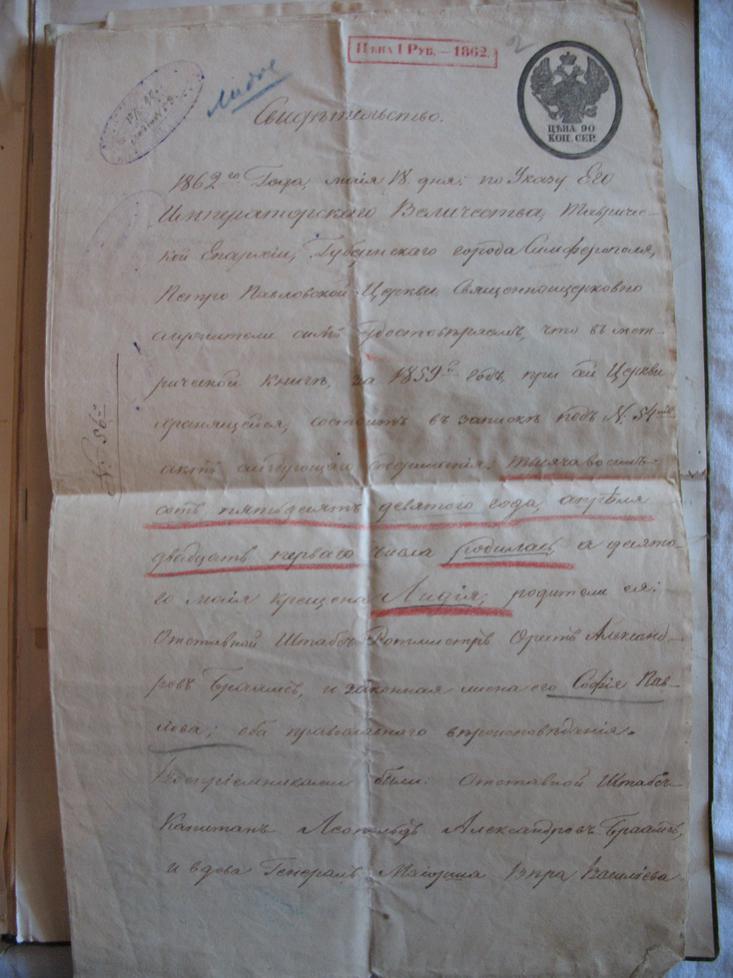 ЦѢНА 1 РУБ. — 1862.
2
ЦѢНА 90
КОП. СЕР.
Лидіе
Свидѣтельство.
1862го Года, маія 18 дня, по Указу Его
Императорскаго Величества, Тавричес-
кой Епархіи, Губернскаго города Симферополя,
Петро Павловской Церкви, Священноцерковно
служители симъ Удостовѣряемъ, что въ мет-
рической книгѣ, за 1859й годъ, при сей Церкви
хранящейся, состоитъ въ запискѣ подъ N. 54мъ
актъ слѣдующаго содержанія: тысяча восемь-
сотъ пятьдесятъ девятого года, апрѣля
двадцать перваго числа родилась, а десято-
го маія крещена Лидія; родители ея:
Отставной Штабсъ Ротмистръ Орестъ Александ-
ровъ Браамсъ, и законная жена его Софія Пав-
лова; оба православнаго вѣроисповѣданія.
Воспріемниками были: Отставной Штабсъ
Капитанъ Леопольдъ Александровъ Браамсъ,
и вдова Генералъ Маіорша Вѣра Василіева
N. 56й